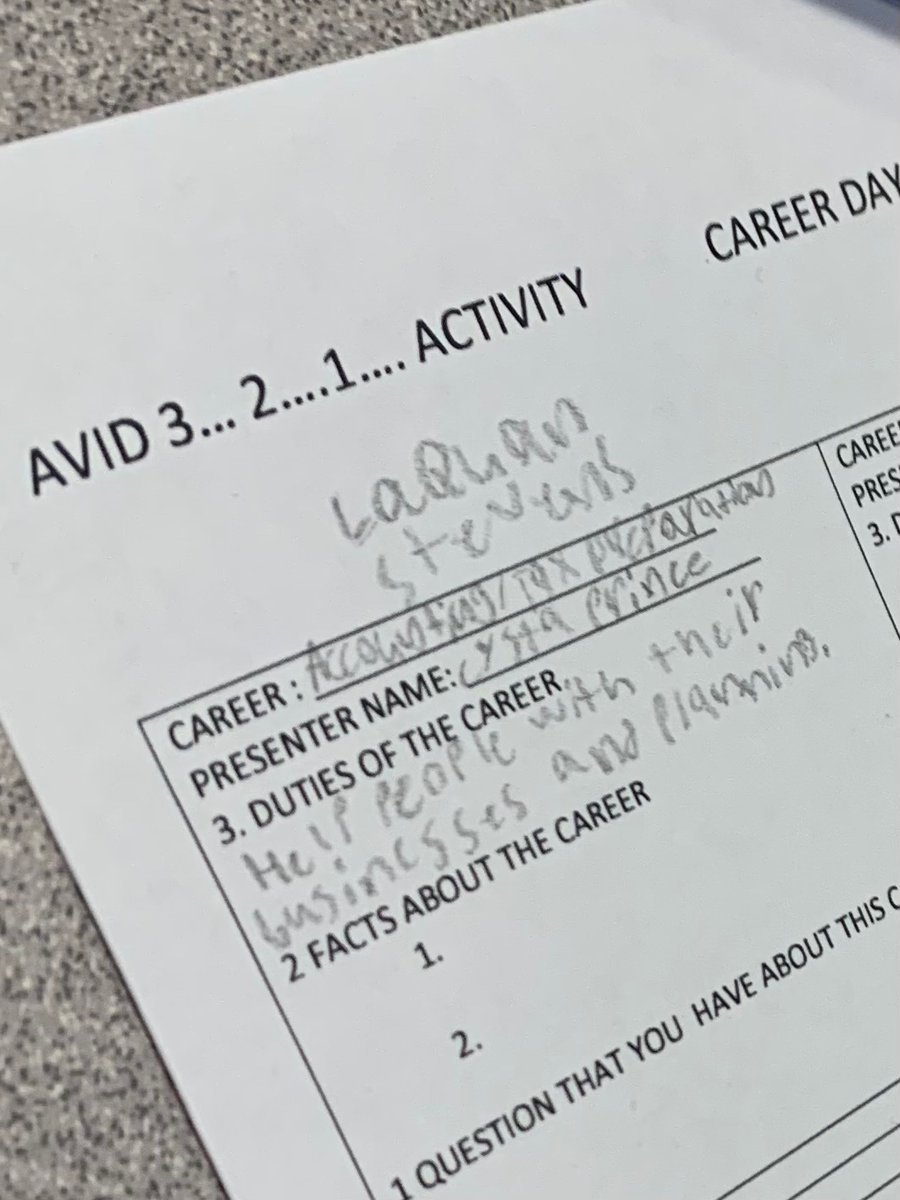 CAREER DAY
AVID 3... 2....1.... ACTIVITY
Stevens
CAREER : Accounting/Tax preparation
PRESENTER NAME: Prince
3. DUTIES OF THE CAREER.
Help people with their
businesses and planning.
2 FACTS ABOUT THE CAREER
1.
2.
1 QUESTION THAT YOU HAVE ABOUT THIS C
CAREE
PRES
3. D